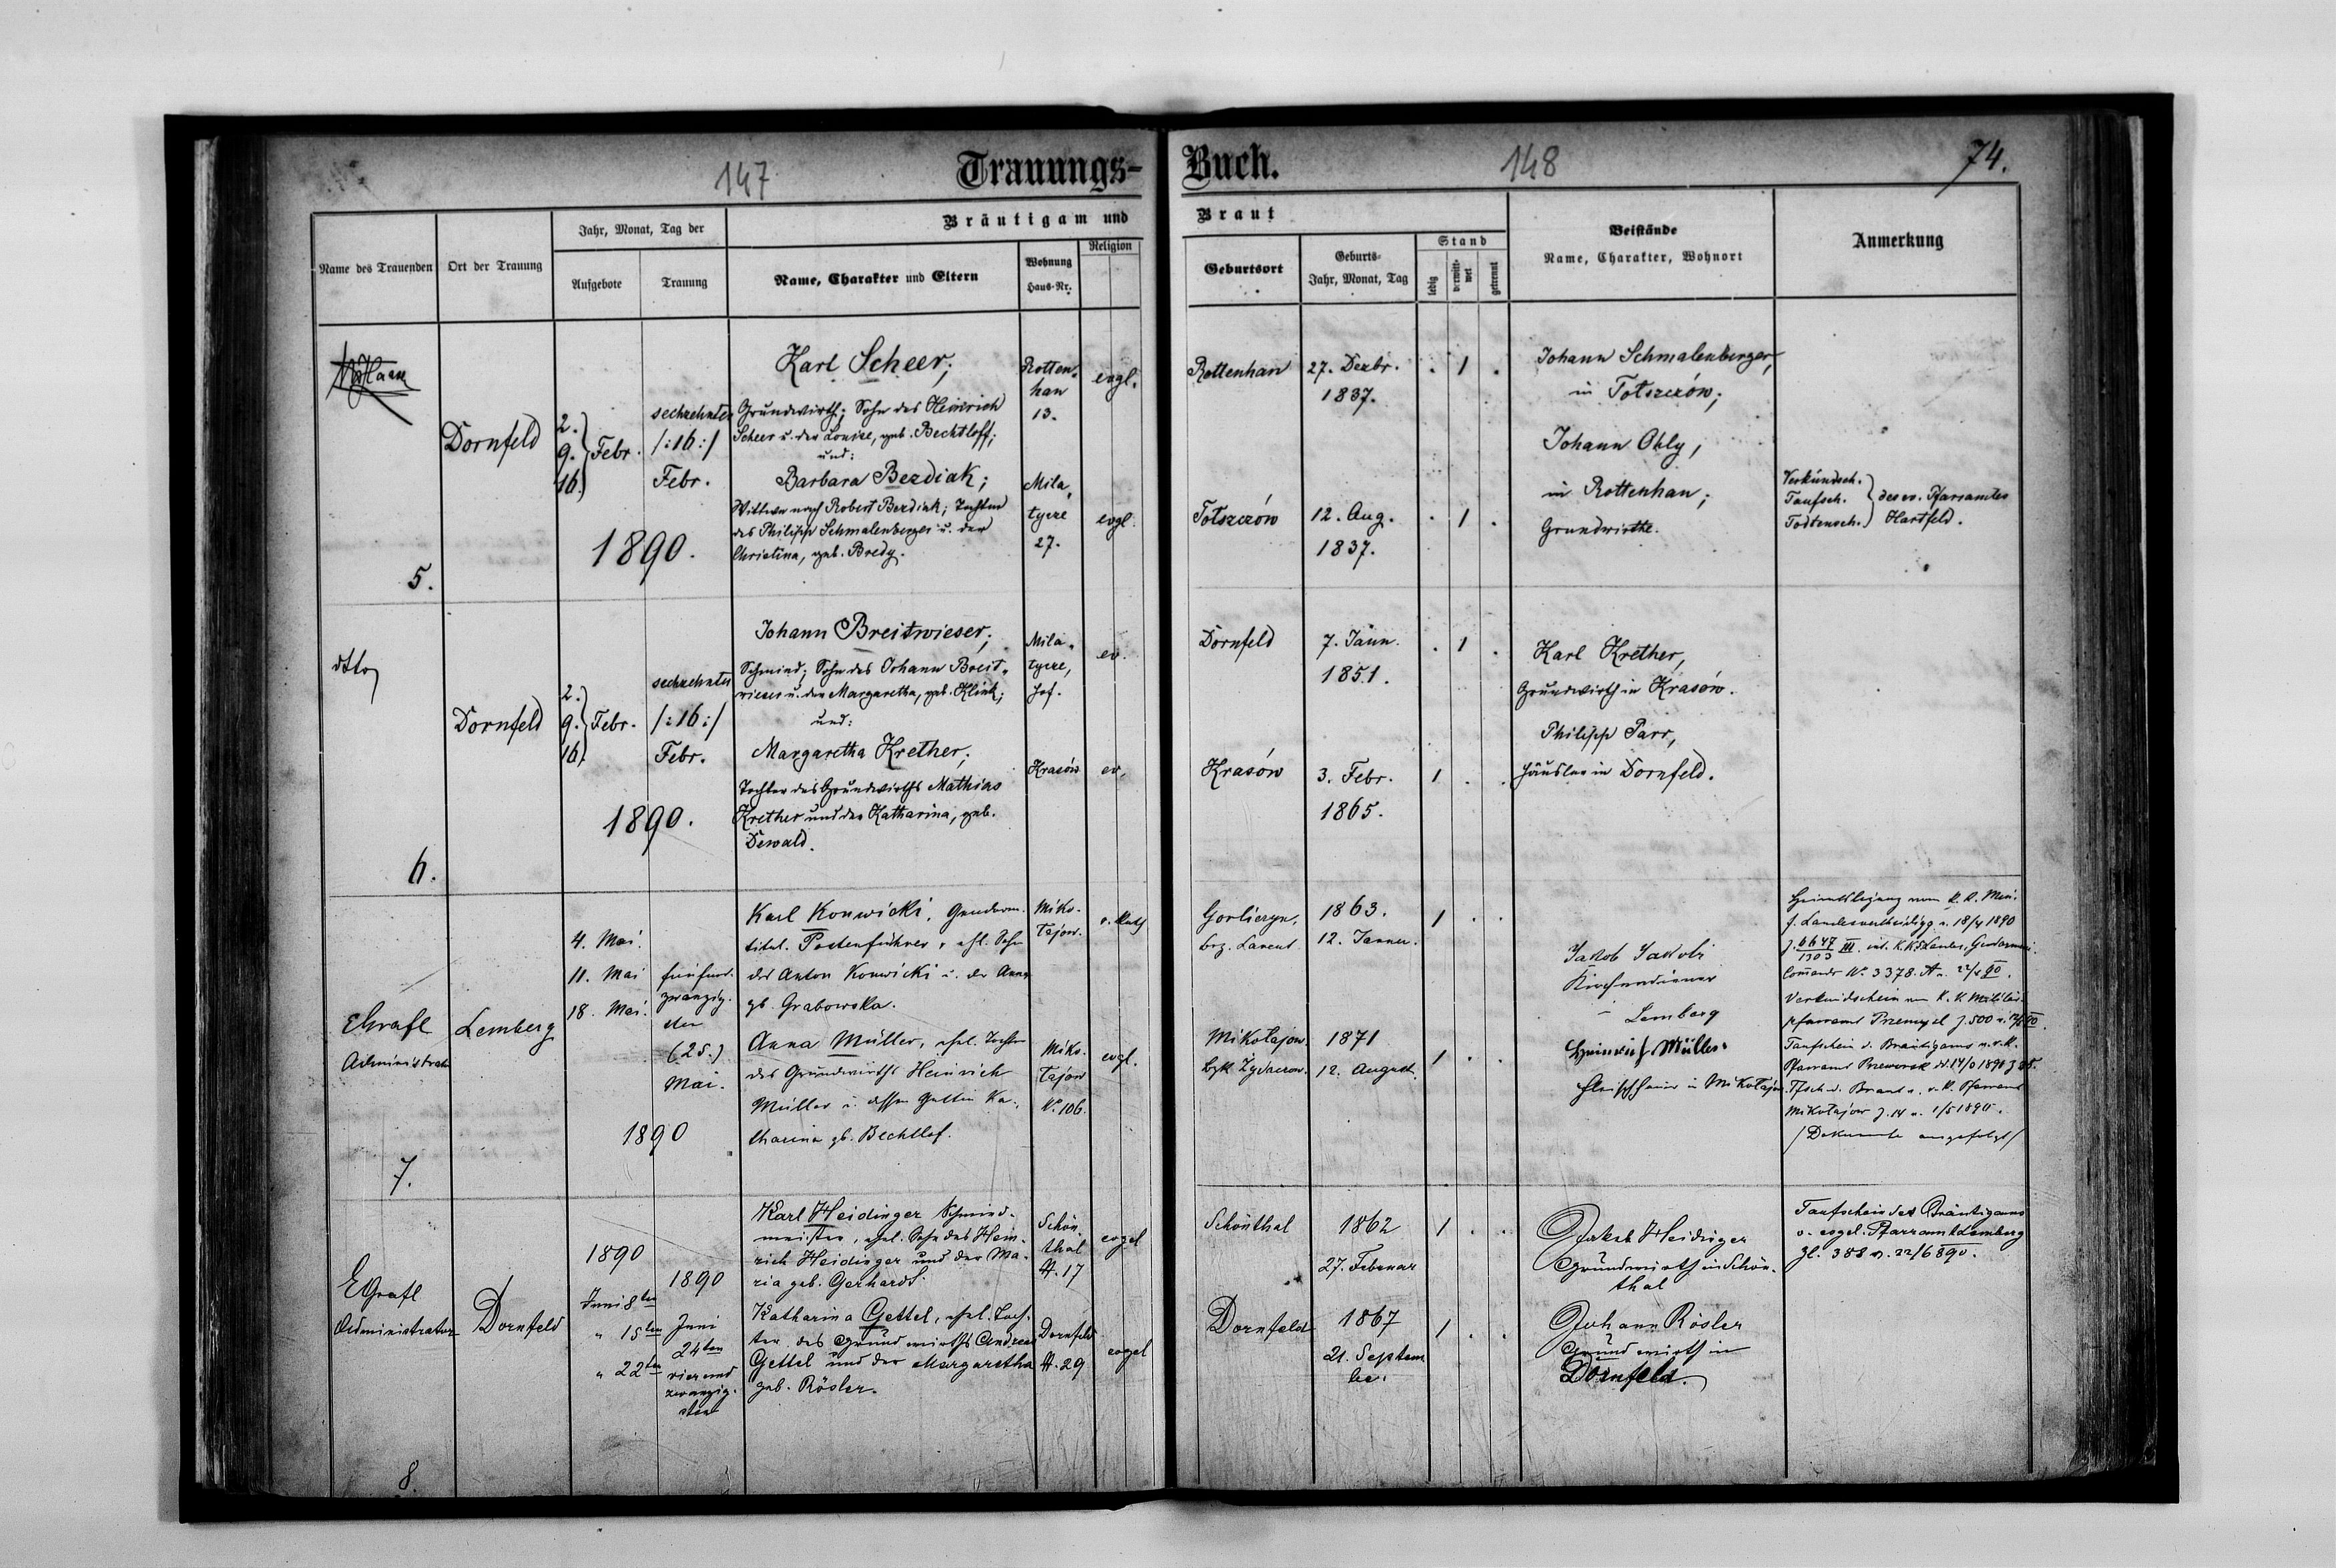 147
Trauungs-
Buch.
148
74.
Name des Trauenden
Ort der Trauung
Jahr, Monat, Tag der
Aufgebote
Trauung
Bräutigam und
Name, Charakter und Eltern
Wohnung
Haus-Nr.
Religion
Braut
Geburtsort
Geburts-
Jahr, Monat, Tag
Stand
ledig
verwitt-
wet
getrennt
Beistände
Name, Charakter, Wohnort
Anmerkung
5.
Dornfeld
2.
9. Febr.
16.
sechzehnten
/:16:/
Febr.
1890.
Karl Scheer;
Grundwirth; Sohn des Heinrich
Scheer u. der Louise, geb. Bechtloff;
und:
Barbara Bezdiak;
Wittwe nach Robert Bezdiak; Tochter
des Philipp Schmalenberger u. der
Christina, geb. Bredy.
Rotten-
han
13.
Mila-
tycze
27.
evgl.
evgl.
Rottenhan
27. Dezbr.
1837.
. 1 .
Totszczów
12. Aug.
1837.
. 1 .
Johann Schmalenberger,
in Totszczów;
Johann Ohly,
in Rottenhan;
Grundwirthe.
Verkündsch.
Taufsch.
Todtensch.
des ev. Pfarramtes
Hartfeld.
dtto
6.
Dornfeld
2.
9. Febr.
16.
sechzehnten
/:16:/
Febr.
1890.
Johann Breitwieser;
Schmied; Sohn des Johann Breit-
wieser u. der Margaretha, geb. Klink;
und:
Margaretha Krether;
Tochter des Grundwirths Mathias
Krether und der Katharina, geb.
Dewald.
Mila-
tycze,
Hof.
Krasów
ev.
ev.
Dornfeld
7. Jänn.
1851.
. 1 .
Krasów
3. Febr.
1865.
1 . .
Karl Krether,
Grundwirth in Krasów.
Philipp Parr,
Häusler in Dornfeld.
EGrafl
Administrator
7.
Lemberg
4. Mai.
11. Mai
18. Mai.
fünfund-
zwanzig-
sten
(25.)
Mai.
1890
Karl Konwicki, Gendarm.
titul. Postenführer, ehl. Sohn
des Anton Konwicki u. der Anna
gb. Grabowska.
Anna Müller, ehel. Tochter
des Grundwirths Heinrich
Müller u. dessen Gattin Ka-
tharina gb. Bechtlof.
Miko-
łajow.
Miko-
łajow
No. 106.
r. kath
evgl.
1863.
12. Jänner.
1 . .
Mikołajow
Bzk Żydaczow.
1871
12. August.
1 . .
Jakob Jakobi
Kirchendiener
Lemberg
Heinrich Müller
Fleischhauer in Mikołajow.
Pfarramt Przemysl
Taufschein d. Bräutigams
Mikołajow
/Dokumente ausgefolgt/
EGrafl
Administrator
8.
Dornfeld
1890
Juni 8ten
" 15ten
" 22ten
1890
Juni
24ten
vier und
zwanzig-
sten
Karl Heidinger Schmied-
meister, ehel. Sohn des Hein-
rich Heidinger und der Ma-
ria geb. Gerhardt.
Katharina Gettel, ehel. Toch-
ter des Grundwirths Andreas
Gettel und der Margaretha
geb. Rösler.
Schön-
thal
#. 17
Dornfeld
#. 29
evgel
evgel
Schönthal
1862
27. Februar
1 . .
Dornfeld
1867
21. Septem
ber.
1 . .
Jakob Heidinger
Grundwirth in Schön-
thal
Johann Rösler
Grundwirth in
Dornfeld.
Taufschein des Bräutigams
v. evgel. Pfarramt Lemberg
Zl. 388 v. 22/6 890.